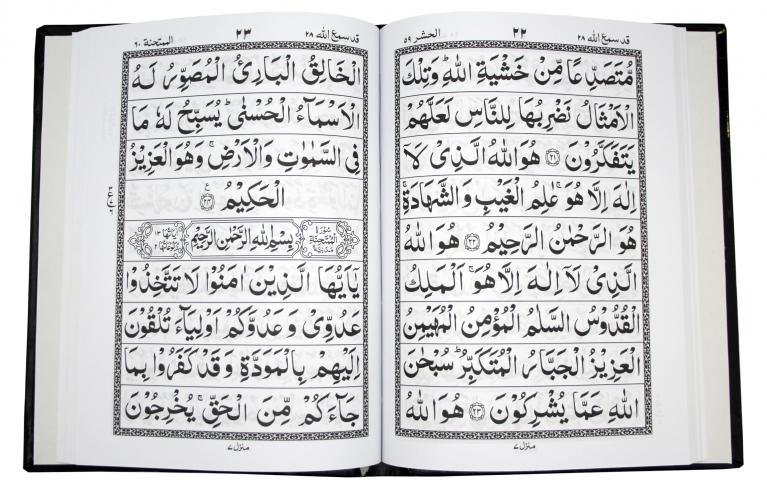 قد سمع الله ٢٨
٢٢
الحشر ٥٩
مُّتَصَدِّعًا مِّنْ خَشْيَةِ اللهِ ؕ وَتِلْكَ
الْاَمْثَالُ نَضْرِبُهَا لِلنَّاسِ لَعَلَّهُمْ
يَتَفَكَّرُوْنَ ﴿٢١﴾ هُوَ اللهُ الَّذِىْ لَاۤ
اِلٰهَ اِلَّا هُوَ ۚ عٰلِمُ الْغَيْبِ وَالشَّهَادَةِ ۚ
هُوَ الرَّحْمٰنُ الرَّحِيْمُ ﴿٢٢﴾ هُوَ اللهُ
الَّذِىْ لَاۤ اِلٰهَ اِلَّا هُوَ ۚ اَلْمَلِكُ
الْقُدُّوْسُ السَّلٰمُ الْمُؤْمِنُ الْمُهَيْمِنُ
الْعَزِيْزُ الْجَبَّارُ الْمُتَكَبِّرُ ؕ سُبْحٰنَ
اللهِ عَمَّا يُشْرِكُوْنَ ﴿٢٣﴾ هُوَ اللهُ
منزل ٧
قد سمع الله ٢٨
٢٣
الممتحنة ٦٠
الْخَالِقُ الْبَارِئُ الْمُصَوِّرُ لَهُ
الْاَسْمَآءُ الْحُسْنٰى ؕ يُسَبِّحُ لَهٗ مَا
فِى السَّمٰوٰتِ وَالْاَرْضِ ۚ وَهُوَ الْعَزِيْزُ
الْحَكِيْمُ ﴿٢٤﴾
سُوْرَةُ الْمُمْتَحِنَةِ مَدَنِيَّةٌ بِسْمِ اللهِ الرَّحْمٰنِ الرَّحِيْمِ
يٰۤاَيُّهَا الَّذِيْنَ اٰمَنُوْا لَا تَتَّخِذُوْا
عَدُوِّىْ وَعَدُوَّكُمْ اَوْلِيَآءَ تُلْقُوْنَ
اِلَيْهِمْ بِالْمَوَدَّةِ وَقَدْ كَفَرُوْا بِمَا
جَآءَكُمْ مِّنَ الْحَقِّ ۚ يُخْرِجُوْنَ
منزل ٧